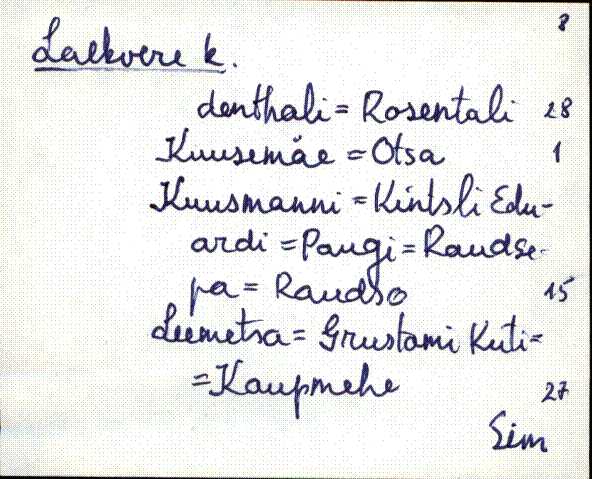 8
Laekvere k.
denthali = Rosentali 28
Kuusemäe = Otsa 1
Kuusmanni = Kintsli Edu-
ardi = Paugi = Raudse-
pa = Raudso 15
Leemetsa = Grustami Kuti =
= Kaupmehe 27
Sim